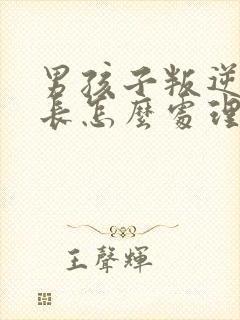 男孩子叛逆
長怎麼處理
王聲輝